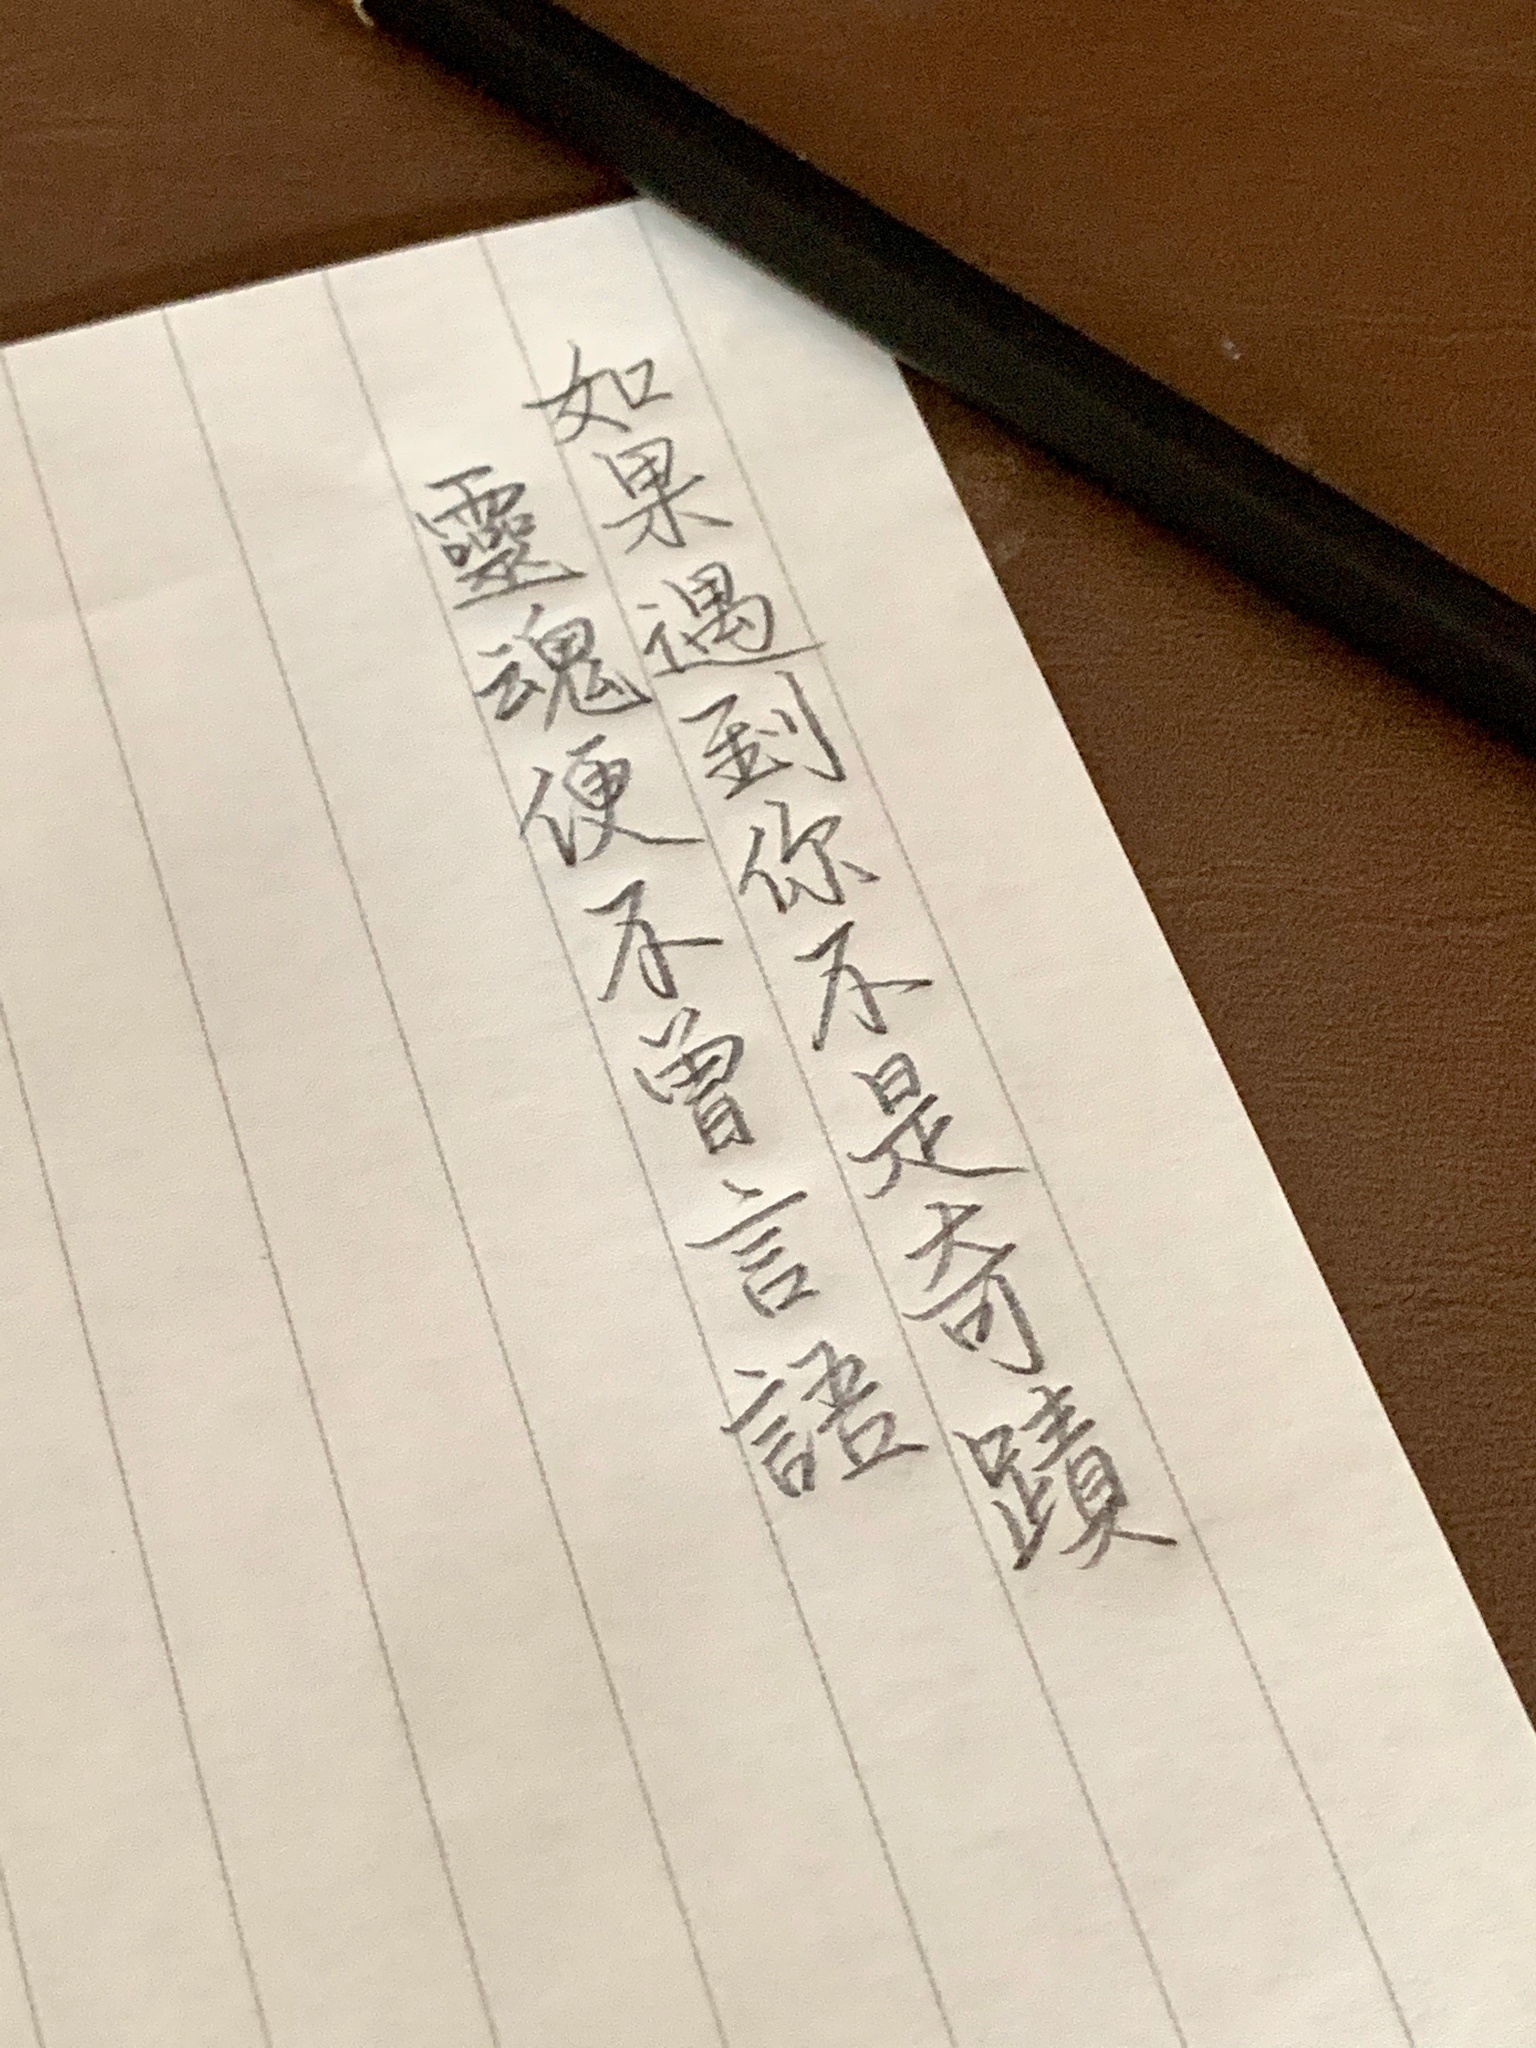 如果遇到你不是奇蹟
靈魂便不曾言語